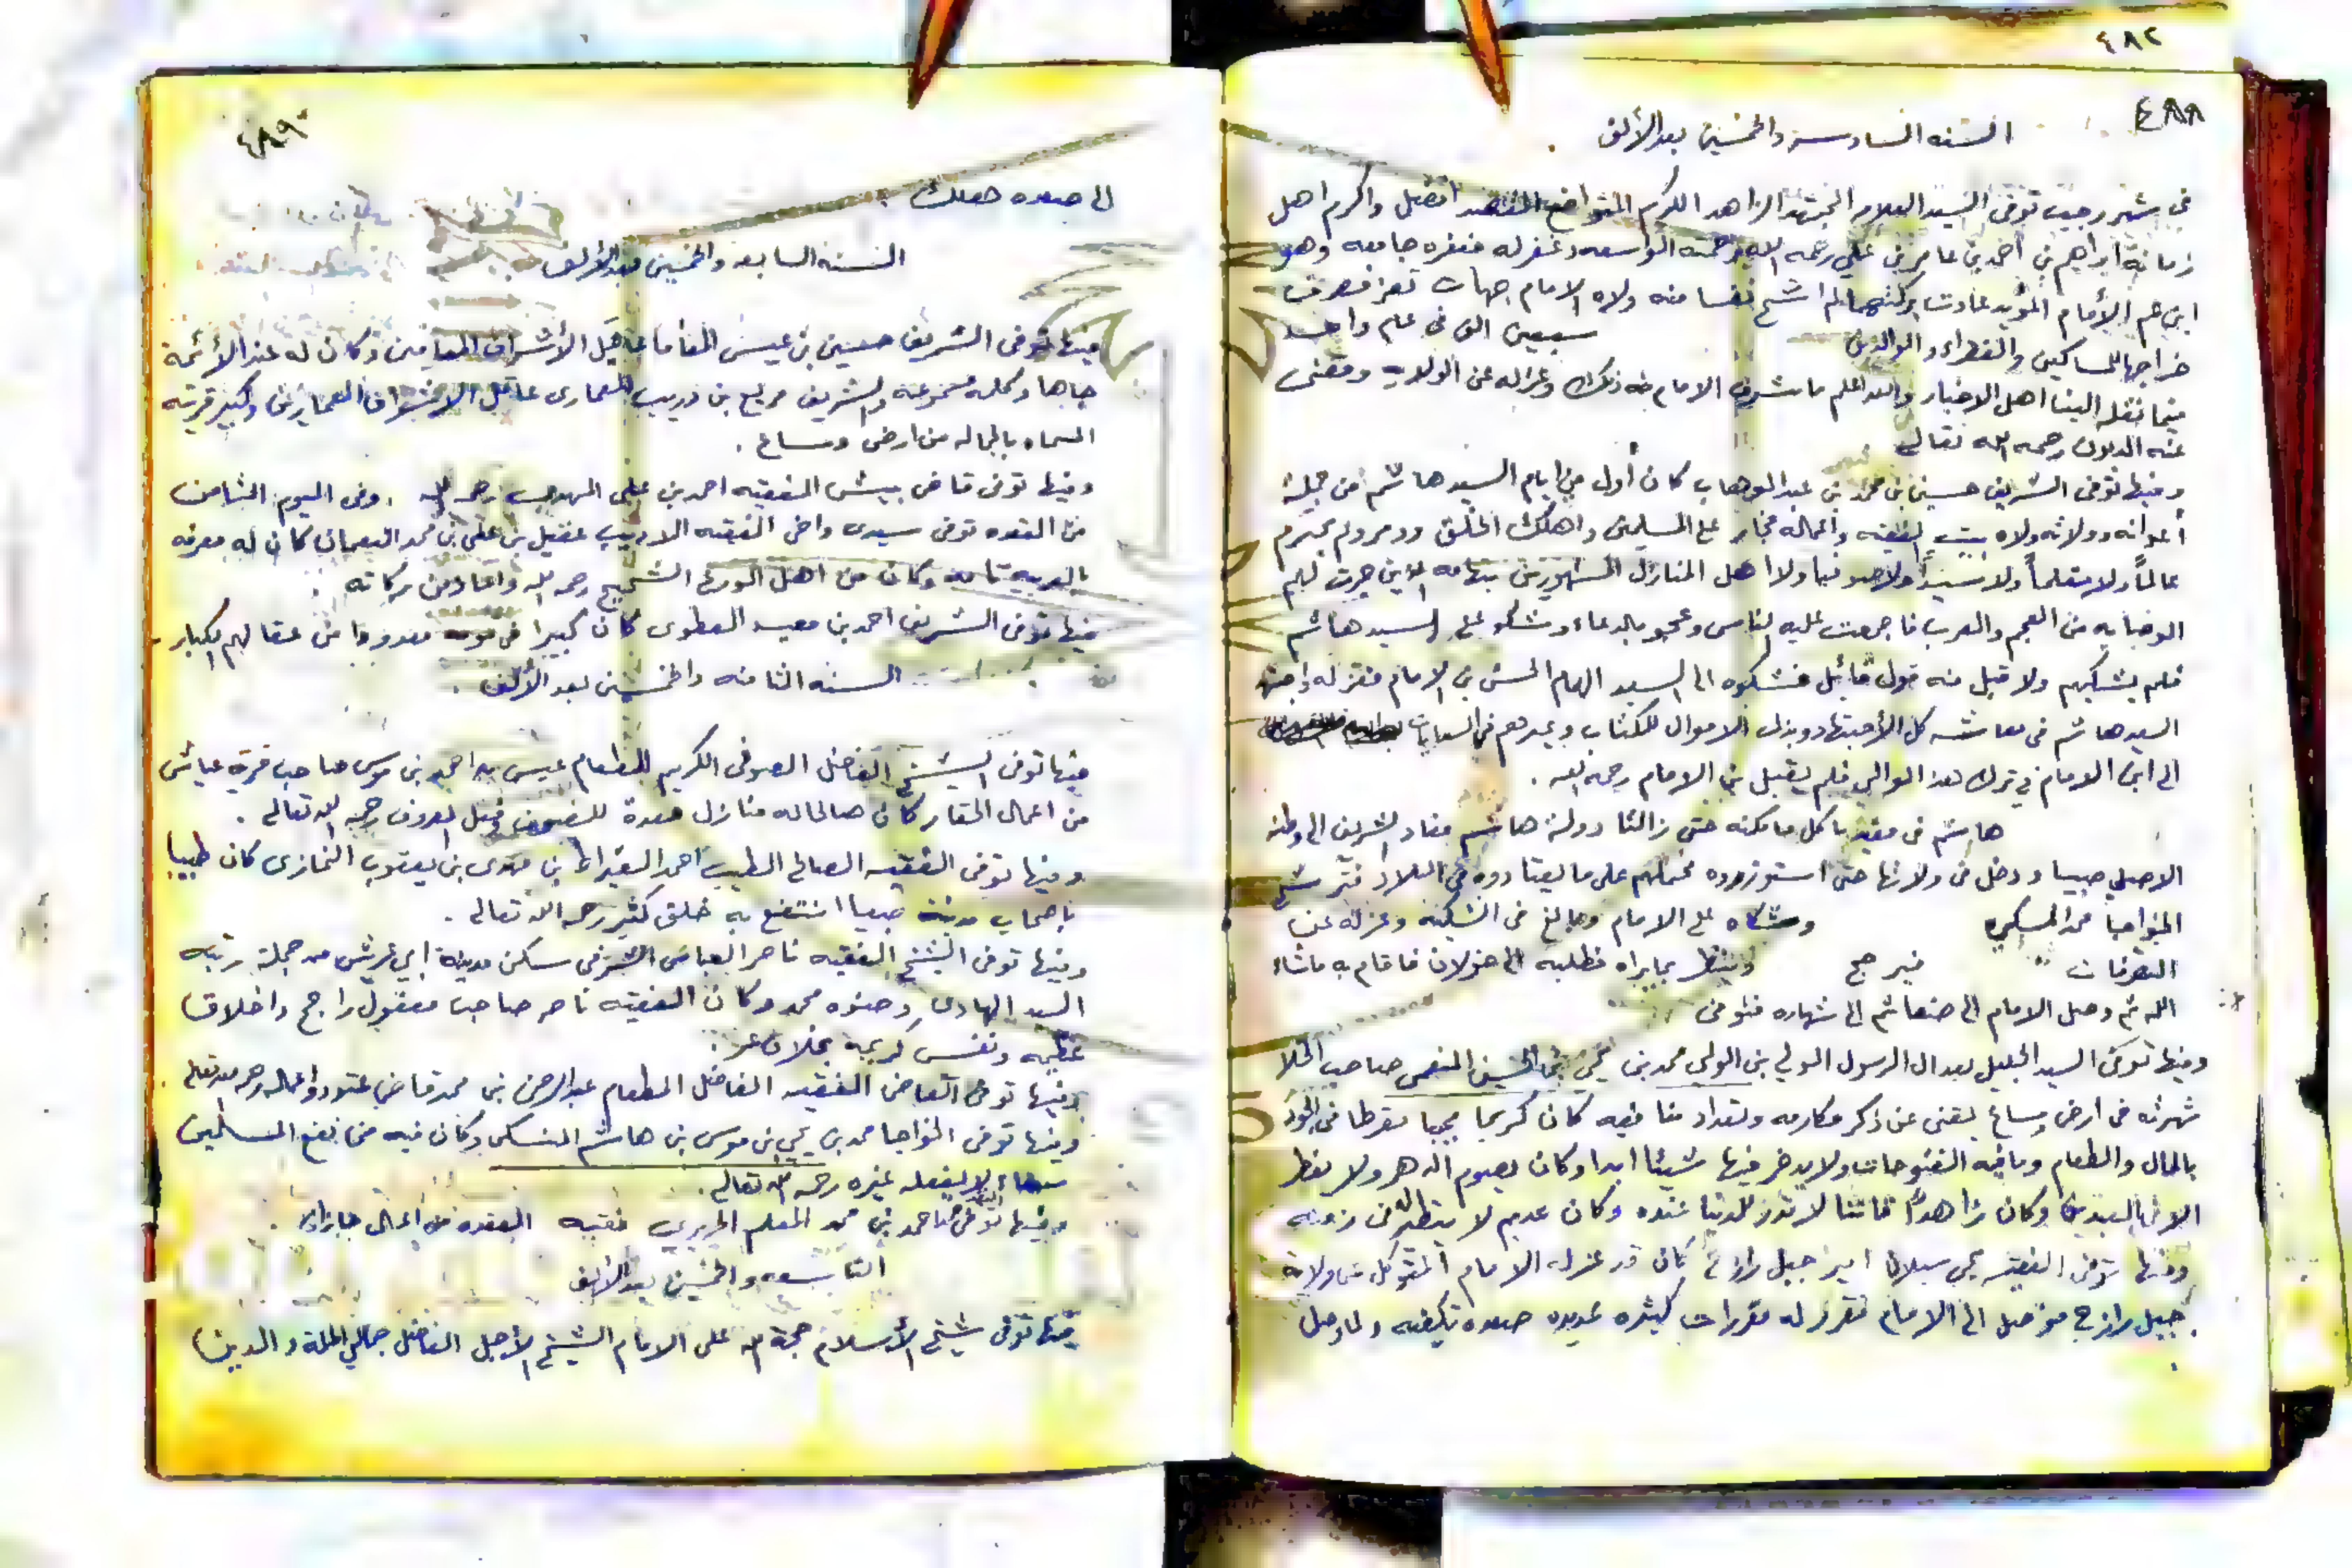 ٤٨٢
٤٨٨
السنه السادسه والخمسين بعد الألف
في شهر رجب توفى السيد العلامه المجتهد الزاهد الكرم المتواضع افضل واكرم اهل
زمانه ابراهيم بن احمد بن عامر بن علي رحمه الله رحمته الواسعه وغفر له مغفره جامعه وهو
ابن عم الأمام المؤيد عادت بركتهما لم اشح نفسا منه ولاه الامام جهات تعز فصرف
خراجها للمساكين والفقراء والوالدين سبعين الف في عام واحد
فيما نقله الينا اهل الاخبار والله اعلم ما شرف الامام منه ذلك وعزله عن الولايه ومضى
عنه الدلان رحمه الله تعالى
وفيها توفى الشريف حسين بن محمد بن عبد الوهاب كان أول من ايام السيد هاشم من جملة
أعوانه وولاته ولاه بيت الفقيه واعماله فجار على المسلمين واهلك الخلق ودمر ولم يحترم
عالماً ولا متعلماً ولا سيداً ولا صوفيا ولا اهل المنازل المشهورين بتهامه الذين جرت لهم
الوصايه من العجم والعرب فاجمعت عليه الناس وعجو بالدعاء وشكو على السيد هاشم
فلم يشكيهم ولا قبل منه قول قائل فشكوه الى السيد الهام الحسن بن الامام فعزله واجتهد
السيد هاشم في معاشه كل الأجتهاد وبذل الاموال للكتاب وغيرهم في السعايات
الى ابن الامام في ترك هذا الوالي فلم يقبل بن الامام رحمه الله .
هاشم في مقيد باكل ما مكنه حتى زالت دولة هاشم فعاد الشريف الى وطنه
الاصلي صبيا ودخل في ولاتها حتى استوزروه فحملهم على ما يعتادوه في البلاد فتر شح
الخواجا محمد المسكي وشكاه على الامام وبالغ في الشكيه وعزله عن
التصرفات فيرجح وينظر بما يراه فطلبه الى خولان فاقام به ماشاء
الله ثم وصل الامام الى صنعا ثم الى شهاره فتوفى
وفيها توفى السيد الجليل بعد ال الرسول الولي بن الولي محمد بن يحيى بن الحسين النعمي صاحب الخلا
شهرته في ارض وساع يغنى عن ذكر مكارمه وتعداد مناقبه كان كريما مجيبا مفرطا في الجود
بالمال والطعام وياتيه الفتوحات ولا يدخر فيها شيئا ابدا وكان يصوم الدهر ولا يفطر
الا في العيدين وكان زاهداً قانتا لا قدر للدنيا عنده وكان عديم لا ينظر في زمنه
وفيها توفى الفقيه يحي سبلان امير جبل رازح كان قد عزله الامام المتوكل من ولاية
جبل رازح فوصل الى الامام فقرر له مقررات كثيره بمدينه صعده تكفيه ولما وصل
٤٨٩
الى صعده هلك
السنه السابعه والخمسين بعد الألف
فيها توفى الشريف حسين بن عيسى المعافا عاقل الأشراف المعافين وكان له عند الأئمة
جاها وكلمه مسموعه والشريف مربع بن دريب العمارى عاقل الاشراف العماريين وكبير قريته
المسماه بالجاله من ارض وساع .
وفيها توفى قاضى بيش الفقيه احمد بن على المهدي رحمه الله . وفى اليوم الثامن
من القعده توفى سيدى واخى الفقيه الاديب عقيل بن على بن محمد النعمان كان له معرفه
بالعربيه تامه وكان من اهل الورع الشحيح رحمه الله واعاد من بركاته .
فيها توفى الشريف احمد بن معيد العطوى كان كبيرا في قومه معدودا من عقالهم الكبار .
السنه الثامنه والخمسين بعد الألف .
فيها توفى الشيخ الفاضل الصوفى الكريم المطعام عيسى بن احمد بن موسى صاحب قرية عياش
من اعمال الحقار كان صالحا له منازل معدة للضيوف وفعل المعروف رحمه الله تعالى .
وفيها توفى الفقيه الصالح الطيب احمد البقراط بن مهدى بن يعقوب النمازى كان طبيبا
باصحاب مدينة صبيا انتفع به خلق كثير رحمه الله تعالى .
وفيها توفى الشيخ الفقيه ناصر العباسى الشرفى سكن مدينة ابي عريش من جملة رتبه
السيد الهادى وصنوه محمد وكان الفقيه ناصر صاحب معقول راجح واخلاق
عظيمه ونفس كريمه بخلاف غيره
وفيها توفى القاضى الفقيه الفاضل المطعام عبد الرحمن بن محمد قاضى عتود واعماله رحمه الله تعالى
وفيها توفى الخواجا محمد بن يحي بن موسى بن هاشم المسكى وكان فيه من نفع المسلمين
لا يفعله غيره رحمه الله تعالى .
وفيها توفى الفقيه احمد بن محمد المعلم الحريري فقيه العقده من اعمال جازان .
التاسعه والخمسين بعد الألف
فيها توفى شيخ الأسلام حجة الله على الانام الشيخ الأجل الفاضل جمالي الملة والدين